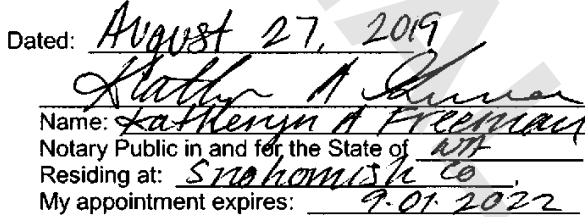 Dated: August 27, 2019
Name: Katheryn A Freeman
Notary Public in and for the State of WA
Residing at: Snohomish Co,
My appointment expires: 9.01.2022